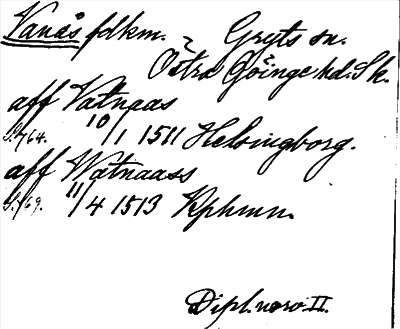 Vanås fdkm. Gryts sn.
Östra Göinge hd. Sk.
aff Vatnaas
S. 64. 10/1 1511 Helsingborg.
aff Watnaass
S. 69. 11/4 1513 Kphmn.
Dipl. norv. II.